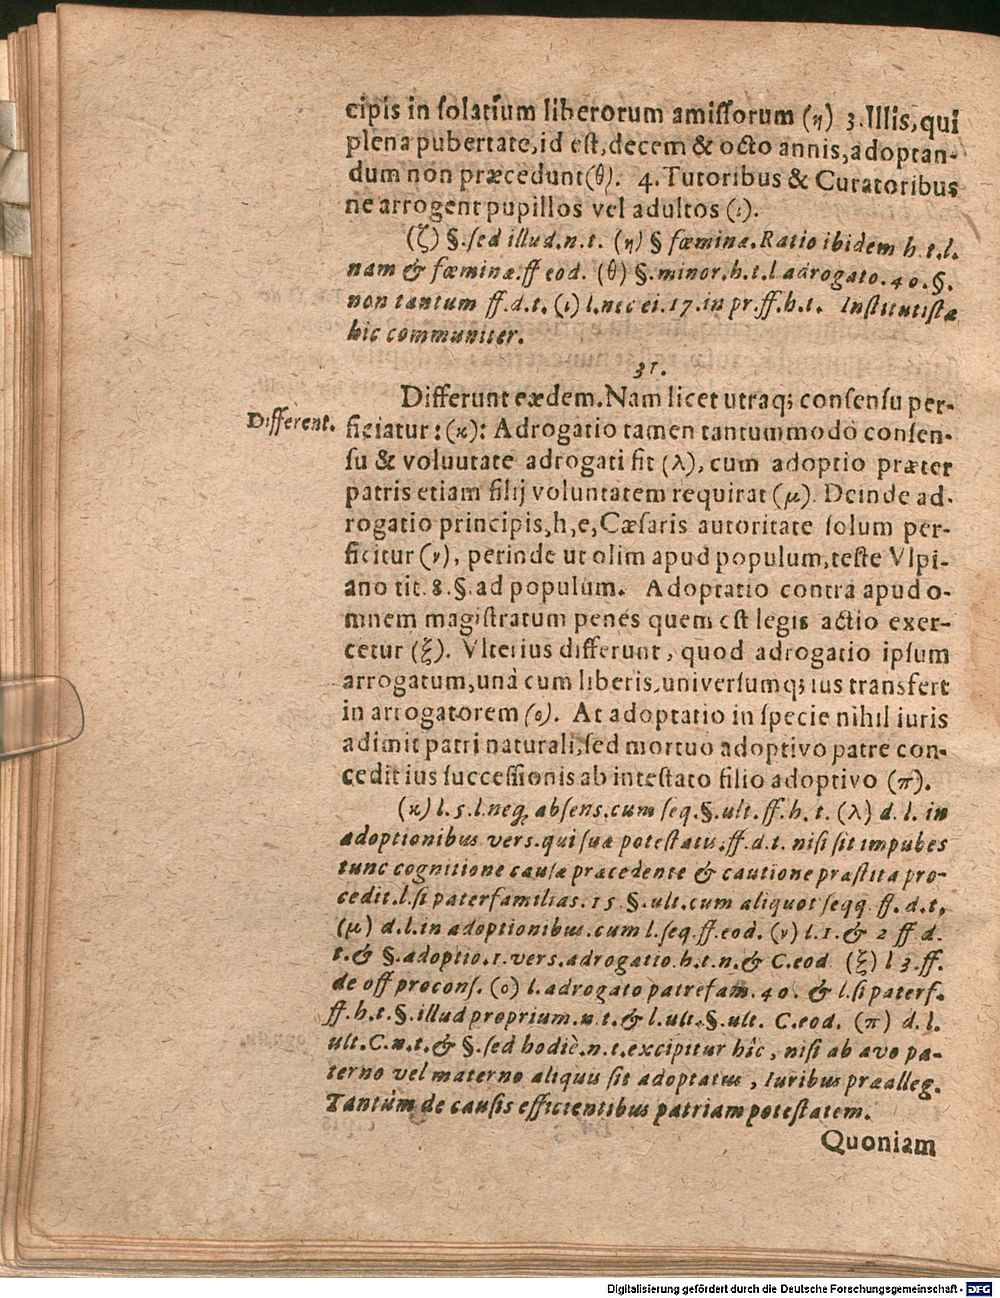 cipis in ſolatium liberorum amiſſorum (η) 3. Illis, qui
plena pubertate, id eſt, decem & octo annis, adoptan-
dum non præcedunt (θ). 4. Tutoribus & Curatoribus
ne arrogent pupillos vel adultos (ι).
(ζ) §. ſed illud. n. t. (η) § fœminæ. Ratio ibidem h. t. l.
nam & fœminæ. ff eod. (θ) §. minor. h. t. l adrogato. 40. §.
non tantum ff. d. t. (ι) l. nec ei. 17. in pr. ff. h. t. Inſtitutiſtæ
hic communiter.
31.
Differunt eædem. Nam licet utraq; conſenſu per-
Different. ficiatur: (κ): Adrogatio tamen tantummodò conſen-
ſu & voluutate adrogati fit (λ), cum adoptio præter
patris etiam filij voluntatem requirat (μ). Deinde ad-
rogatio principis, h, e, Cæſaris autoritate ſolum per-
ficitur (ν), perinde ut olim apud populum, teſte Vlpi-
ano tit. 8. §. ad populum. Adoptatio contra apud o-
mnem magiſtratum penès quem eſt legis actio exer-
cetur (ξ). Vlterius differunt, quod adrogatio ipſum
arrogatum, unà cum liberis, univerſumq; ius transfert
in arrogatorem (ο). At adoptatio in ſpecie nihil iuris
adimit patri naturali, ſed mortuo adoptivo patre con-
cedit ius ſucceſſionis ab inteſtato filio adoptivo (π).
(κ) l. 5. l. neq. abſens. cum ſeq. §. ult. ff. h. t. (λ) d. l. in
adoptionibus verſ. qui ſuæ poteſtatis. ff. d. t. niſi ſit impubes
tunc cognitione cauſæ præcedente & cautione præſtita pro-
cedit. l. ſi paterfamilias. 15 §. ult. cum aliquot ſeqq ff. d. t.
(μ) d. l. in adoptionibus. cum l. ſeq. ff. eod. (ν) l. 1. & 2 ff d.
t. & §. adoptio. 1. verſ. adrogatio. h. t. n. & C. eod (ξ) l 3. ff.
de off proconſ. (ο) l. adrogato patrefam. 40. & l. ſi paterf.
ff. h. t. §. illud proprium. n t. & l. ult. §. ult. C. eod. (π) d. l.
ult. C. n. t. & §. ſed hodiè. n. t. excipitur hîc, niſi ab avo pa-
terno vel materno aliquis ſit adoptatus, Iuribus præalleg.
Tantùm de cauſis efficientibus patriam poteſtatem.
Quoniam
Digitalisierung gefördert durch die Deutsche Forschungsgemeinschaft - DFG